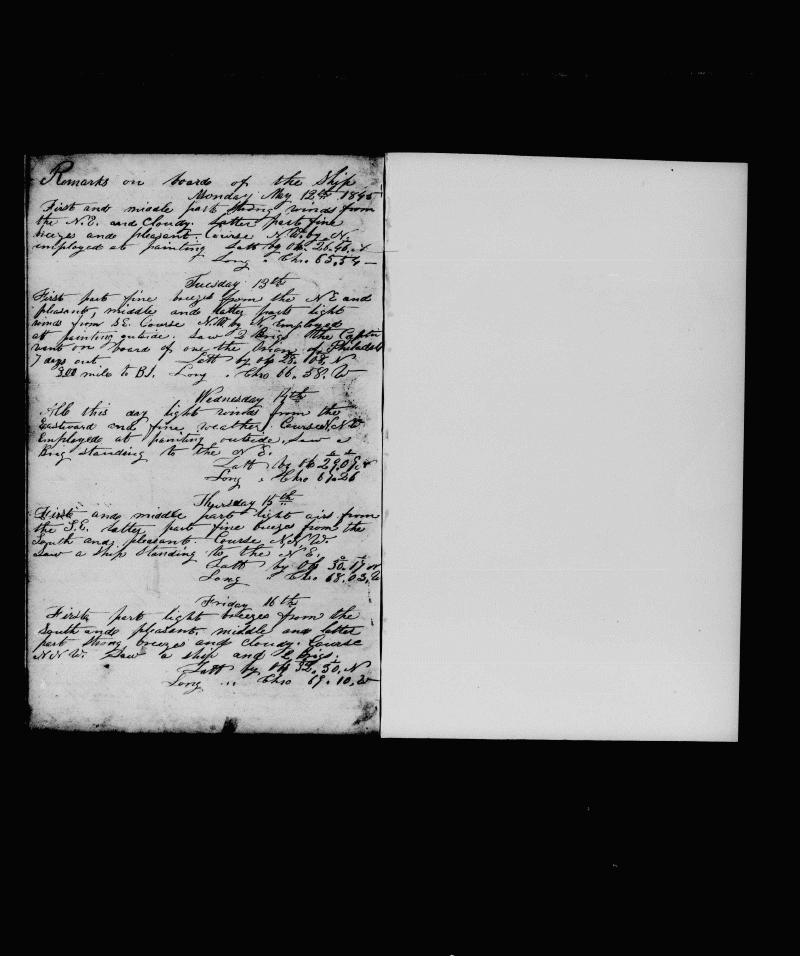 Remarks on board of the Ship
Monday May 12th 1845
First and middle part strong winds from
the N.E. and Cloudy. Latter part fine
breezes and pleasant. Course N.W. by N.
employed at painting Latt by Ob. 26.46. N
Long " Chro. 65.54
Tuesday 13th
First part fine breezes from the N E and
pleasant, middle and latter parts light
winds from S.E. Course N.W by N. Employed
at painting outside. Saw 2 Brigs the Captn
went on board of one the of Philadel
7 days out Latt by Ob 28.08. N
300 mile to B.I. Long " Chro 66.58. W
Wednesday 14th
All this day light winds from the
Eastward and fine weather. Course N.N.W
Employed at painting outside, Saw a
Brig standing to the N.E.
Latt by Ob 29.09. N
Long " Chro 67.26
Thursday 15th
First and middle part light airs from
the S.E. latter part fine breezes from the
South and pleasant. Course N.N.W.
Saw a ship standing to the N.E.
Latt by Ob 30.17 N
Long " Chro 68.03. W
Friday 16th
First part light breezes from the
South and pleasant, middle and latter
part strong breezes and cloudy. Course
N N W. Saw a ship and 2 Brigs.
Latt by Ob 32.50. N
Long " Chro 69.10. W